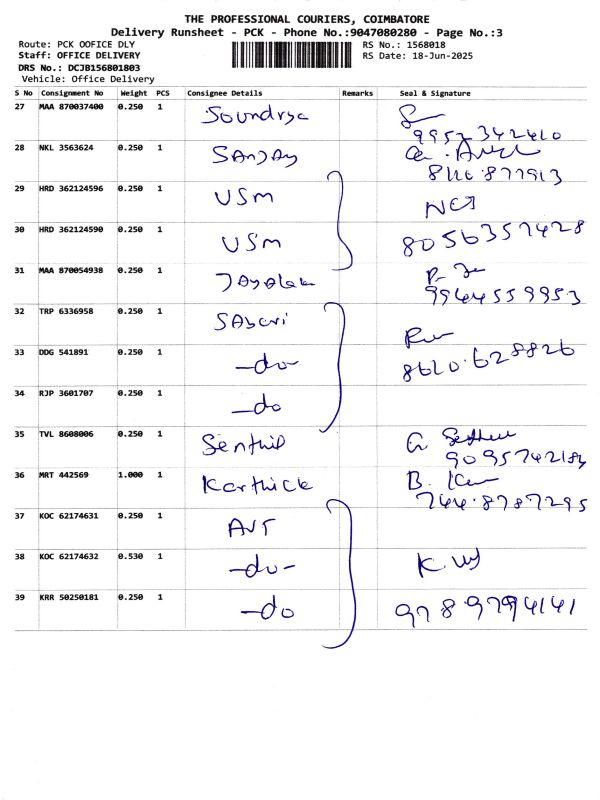 THE PROFESSIONAL COURIERS, COIMBATORE
Delivery Runsheet - PCK - Phone No.:9047080280 - Page No.:3
Route: PCK OOFICE DLY RS No.: 1568018
Staff: OFFICE DELIVERY RS Date: 18-Jun-2025
DRS No.: DCJB156801803
Vehicle: Office Delivery
S No Consignment No Weight PCS Consignee Details Remarks Seal & Signature
27 MAA 870037400 0.250 1 Soundrya
9952342410
28 NKL 3563624 0.250 1 SANJAY
29 HRD 362124596 0.250 1 USM
30 HRD 362124590 0.250 1 USM 8056357428
31 MAA 870054938 0.250 1
9944559953
32 TRP 6336958 0.250 1 SAbari
33 DDG 541891 0.250 1 -do- 8610.628826
34 RJP 3601707 0.250 1 -do
35 TVL 8608006 0.250 1 Senthil G.
36 MRT 442569 1.000 1 Karthick B.
744.8787295
37 KOC 62174631 0.250 1 AVT
38 KOC 62174632 0.530 1 -do- K.
39 KRR 50250181 0.250 1 -do 9789794141